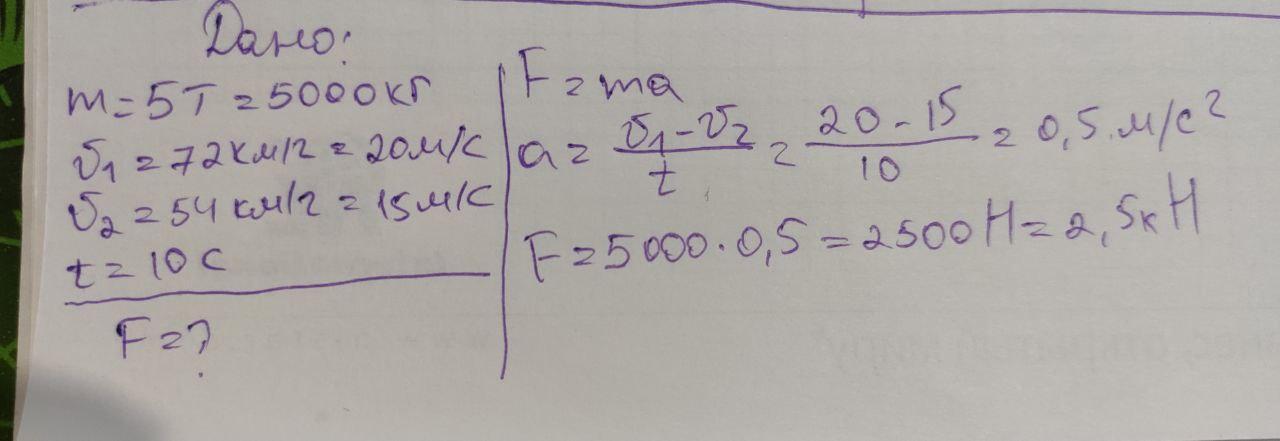 Дано:
m = 5т = 5000кг
υ₁ = 72км/г = 20м/с
υ₂ = 54км/г = 15м/с
t = 10 с
F = ?
F = ma
a = (υ₁ - υ₂)/t = (20 - 15)/10 = 0,5 м/с²
F = 5000 · 0,5 = 2500 Н = 2,5к Н